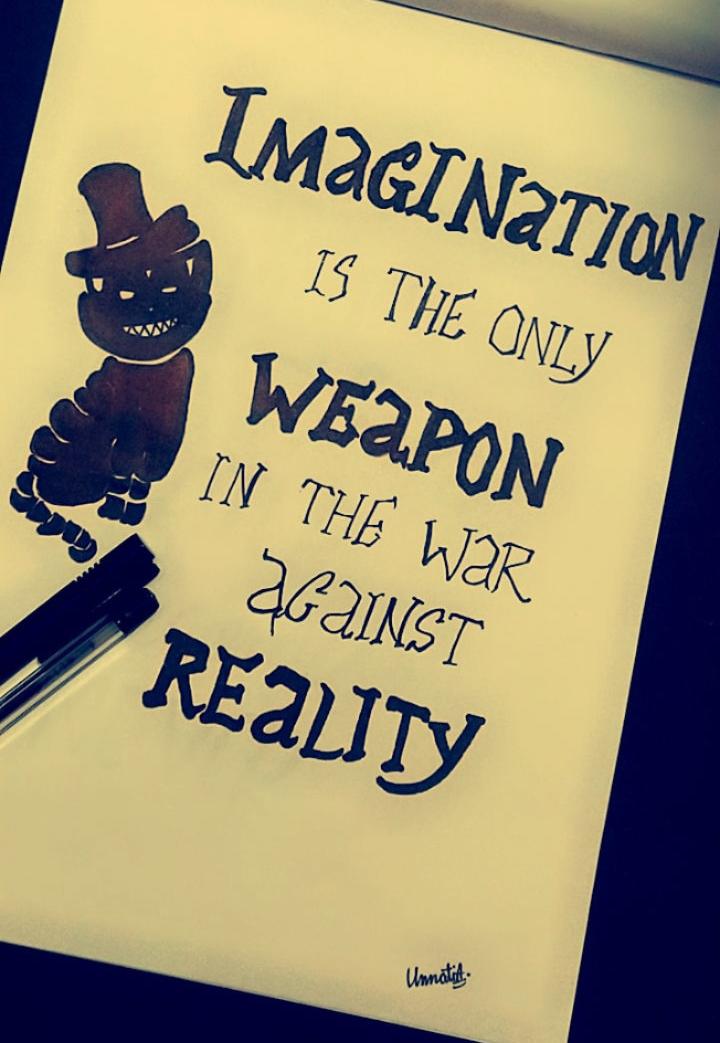 IMaGINaTION
IS THE ONLY
WEaPON
IN THE WaR
aGaINST
REaLITY
UnnatiA.